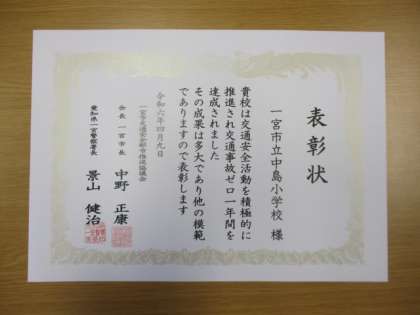 表彰状
一宮市立中島小学校 様
貴校は交通安全活動を積極的に
推進され交通事故ゼロ一年間を
達成されました
その成果は多大であり他の模範
でありますので表彰します
令和六年四月九日
一宮市交通安全都市推進協議会
会長 一宮市長 中野 正康
愛知県一宮警察署長 景山 健治